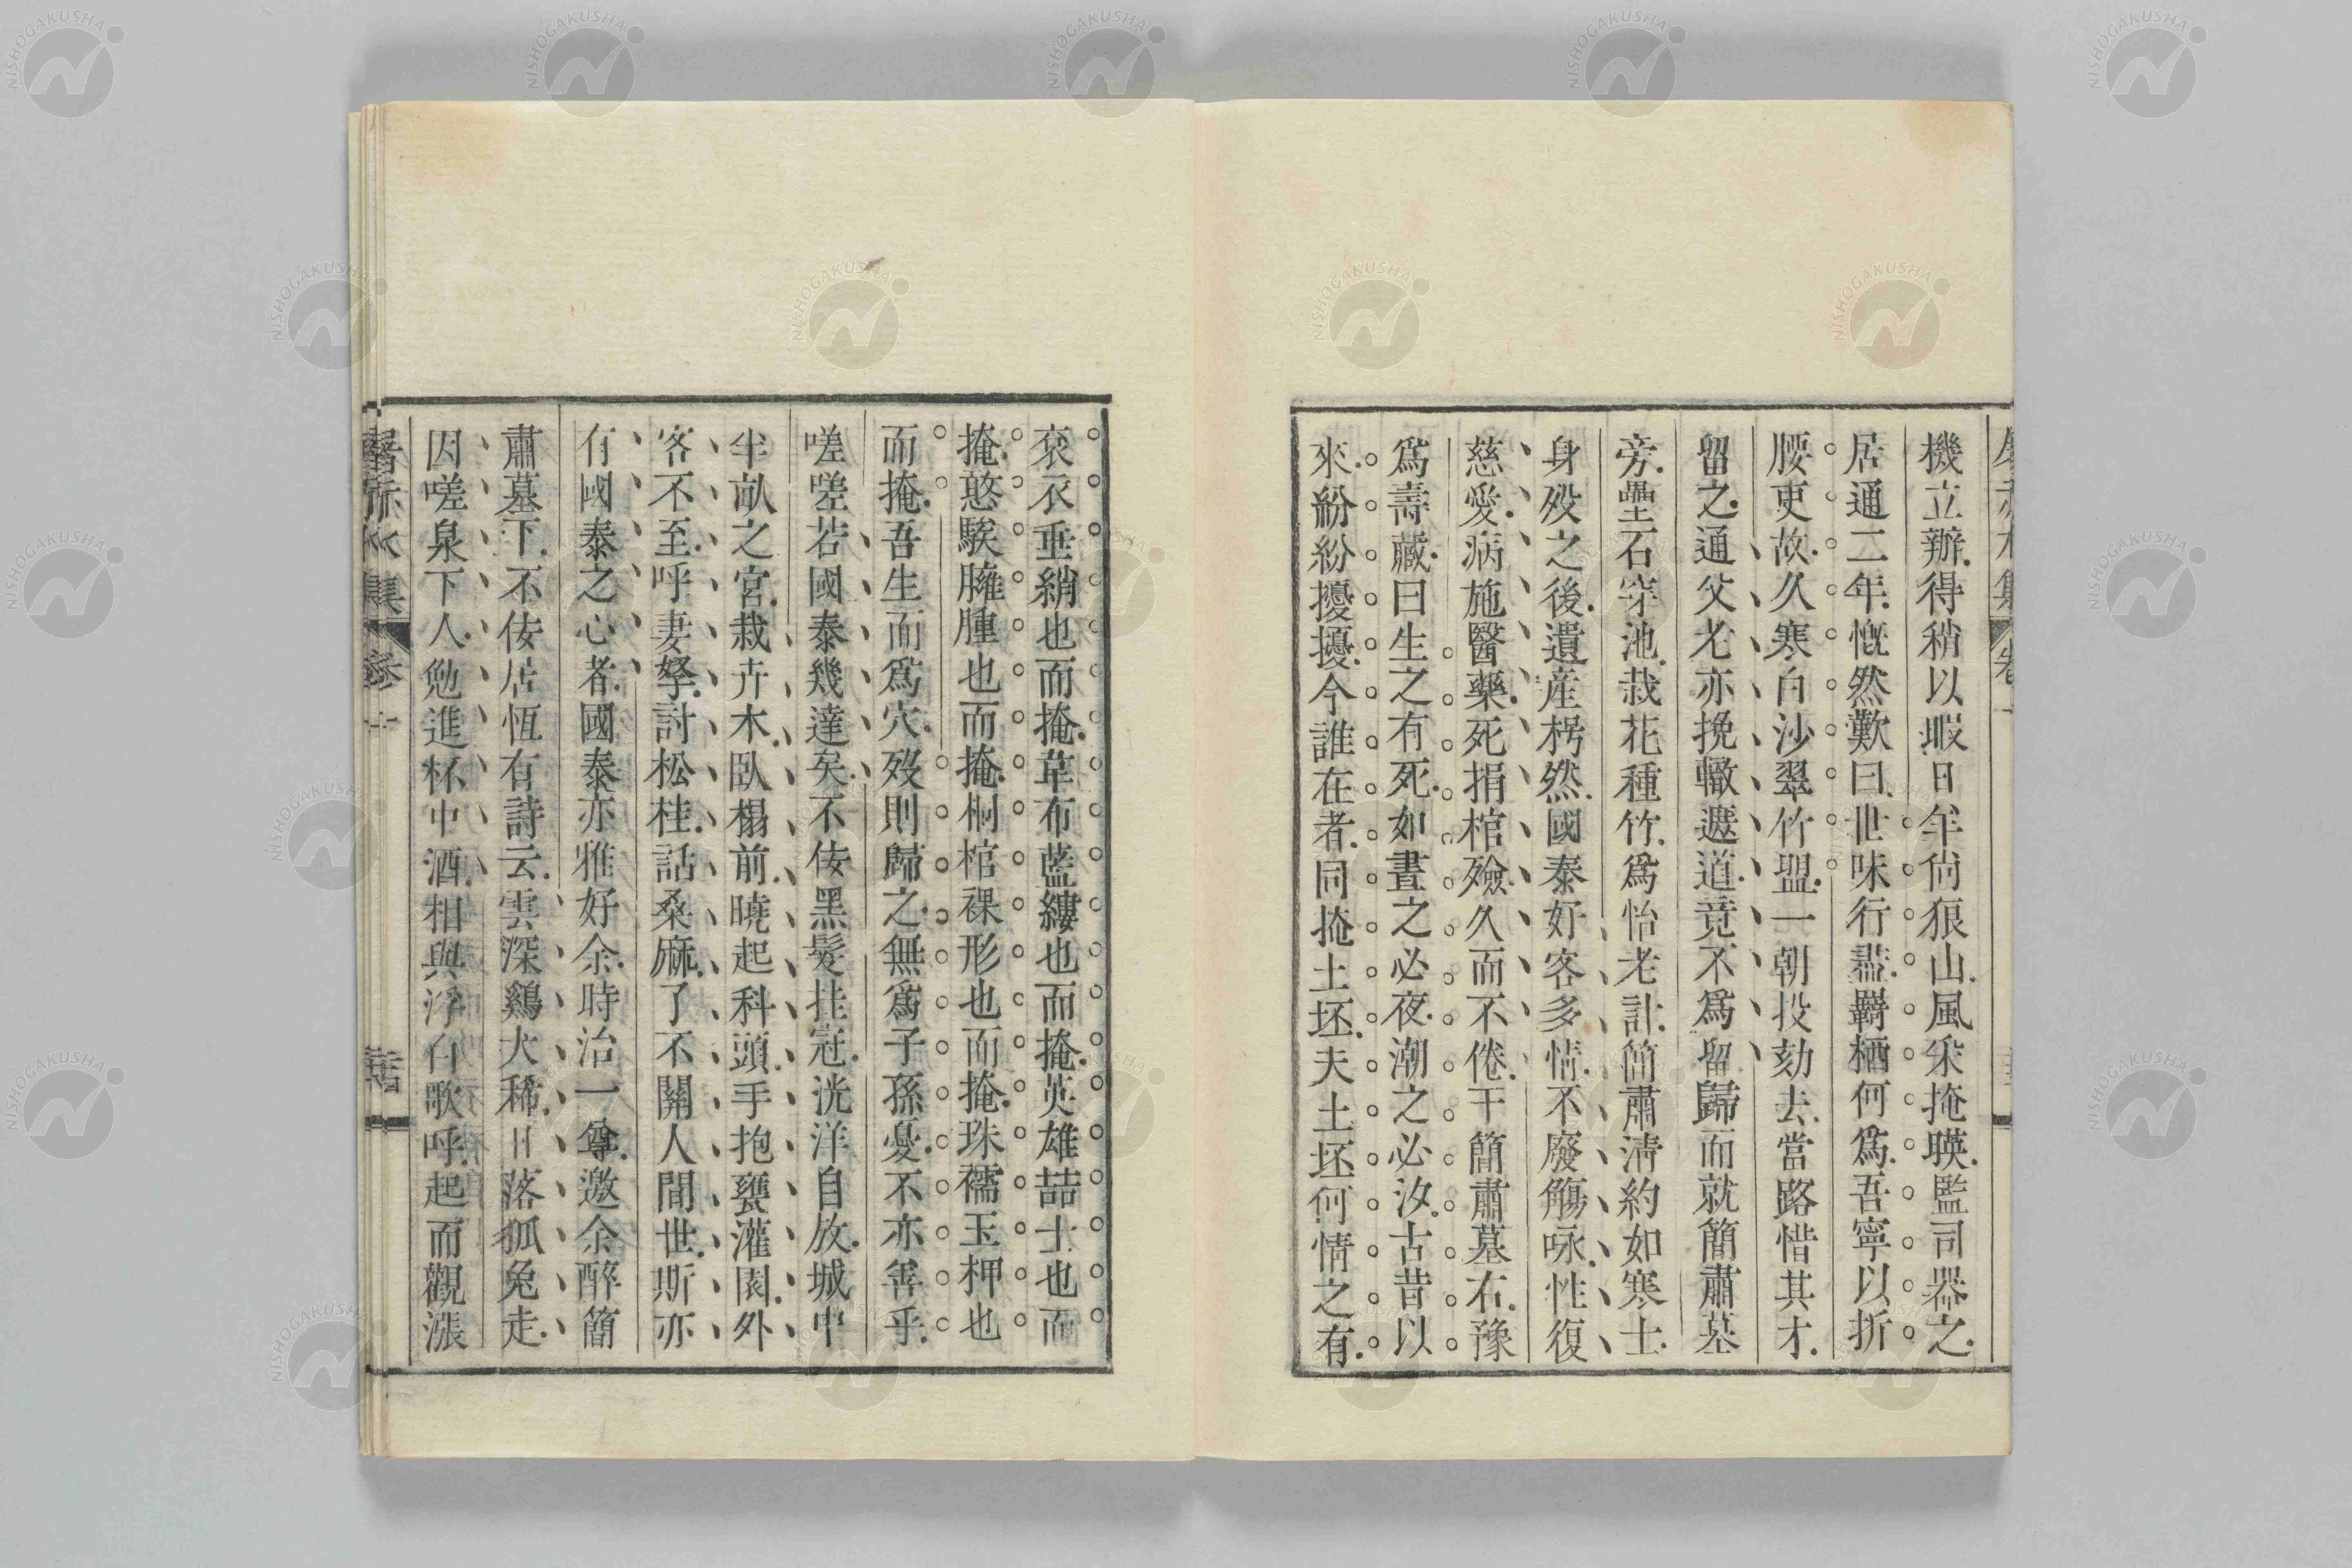 機立辦得稍以暇日牟尙狼山風采掩暎監司器之
居通二年慨然歎曰世味行盡羈栖何爲吾寧以折
腰吏故久寒白沙翠竹盟一朝投劾去當路惜其才
留之通父老亦挽轍遮道竟不爲留歸而就簡肅墓
旁壘石穿池栽花種竹爲怡老計簡肅淸約如寒士
身歿之後遺産枵然國泰好客多情不廢觴咏性復
慈愛病施醫藥死捐棺殮久而不倦于簡肅墓右豫
爲壽藏曰生之有死如晝之必夜潮之必汐古昔以
來紛紛擾擾今誰在者同掩土坯夫土坯何情之有
袞衣垂綃也而掩韋布藍縷也而掩英雄喆士也而
掩憨騃臃腫也而掩桐棺裸形也而掩珠襦玉柙也
而掩吾生而爲穴歿則歸之無爲子孫憂不亦善乎
嗟嗟若國泰幾達矣不佞黑髮挂冠洸洋自放城中
半畝之宮栽卉木臥榻前曉起科頭手抱甕灌園外
客不至呼妻孥討松桂話桑麻了不關人間世斯亦
有國泰之心者國泰亦雅好余時治一尊邀余醉簡
肅墓下不佞居恆有詩云雲深鷄犬稀日落狐兔走
因嗟泉下人勉進杯中酒相與浮白歌呼起而觀漲